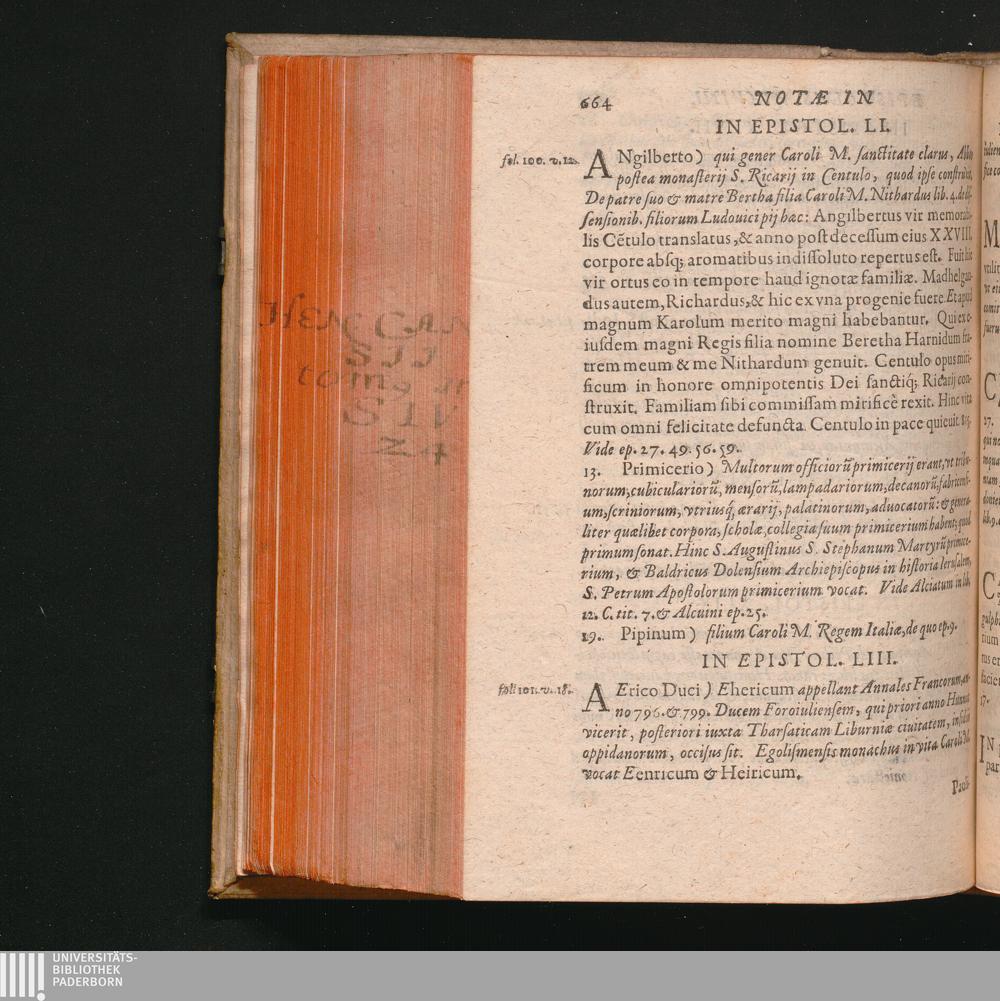 664 NOTÆ IN
IN EPISTOL. LI.
fol. 100. v. 12.
ANgilberto) qui gener Caroli M. sanctitate clarus, Abbas
postea monasterij S. Ricarij in Centulo, quod ipse construxit,
De patre suo & matre Bertha filia Caroli M. Nithardus lib. 4. de dis-
sensionib. filiorum Ludouici pij hæc: Angilbertus vir memorabi-
lis Cẽtulo translatus, & anno post decessum eius XXVIII.
corpore absq; aromatibus indissoluto repertus est. Fuit hic
vir ortus eo in tempore haud ignotæ familiæ. Madhelgau-
dus autem, Richardus, & hic ex vna progenie fuere. Et apud
magnum Karolum merito magni habebantur. Qui ex e-
iusdem magni Regis filia nomine Beretha Harnidum fra-
trem meum & me Nithardum genuit. Centulo opus miri-
ficum in honore omnipotentis Dei sanctiq; Ricarij con-
struxit. Familiam sibi commissam mirificè rexit. Hinc vita
cum omni felicitate defuncta Centulo in pace quieuit.
Vide ep. 27. 49. 56. 59.
13. Primicerio) Multorum officiorũ primicerij erant, vt tribu-
norum, cubiculariorũ, mensorũ, lampadariorum, decanorũ, fabricensi-
um, scriniorum, vtriusq́ ærarij, palatinorum, aduocatorũ: & genera-
liter quælibet corpora, scholæ, collegia suum primicerium habent; quod
primum sonat. Hinc S. Augustinus S. Stephanum Martyrũ primice-
rium, & Baldricus Dolensium Archiepiscopus in historia Ierusalem,
S. Petrum Apostolorum primicerium vocat. Vide Alciatum in lib.
12. C. tit. 7. & Alcuini ep. 25.
19. Pipinum) filium Caroli M. Regem Italiæ, de quo ep. 9.
IN EPISTOL. LIII.
fol. 101. v. 18.
AErico Duci) Ehericum appellant Annales Francorum, an-
no 796. & 799. Ducem Foroiuliensem, qui priori anno Hunnos
vicerit, posteriori iuxta Tharsaticam Liburniæ ciuitatem, insidiis
oppidanorum, occisus sit. Egolismensis monachus in vita Caroli M.
vocat Eenricum & Heiricum.
Pauli-
HENC CAN
SII
tom9
SIV
24
UNIVERSITÄTS-
BIBLIOTHEK
PADERBORN